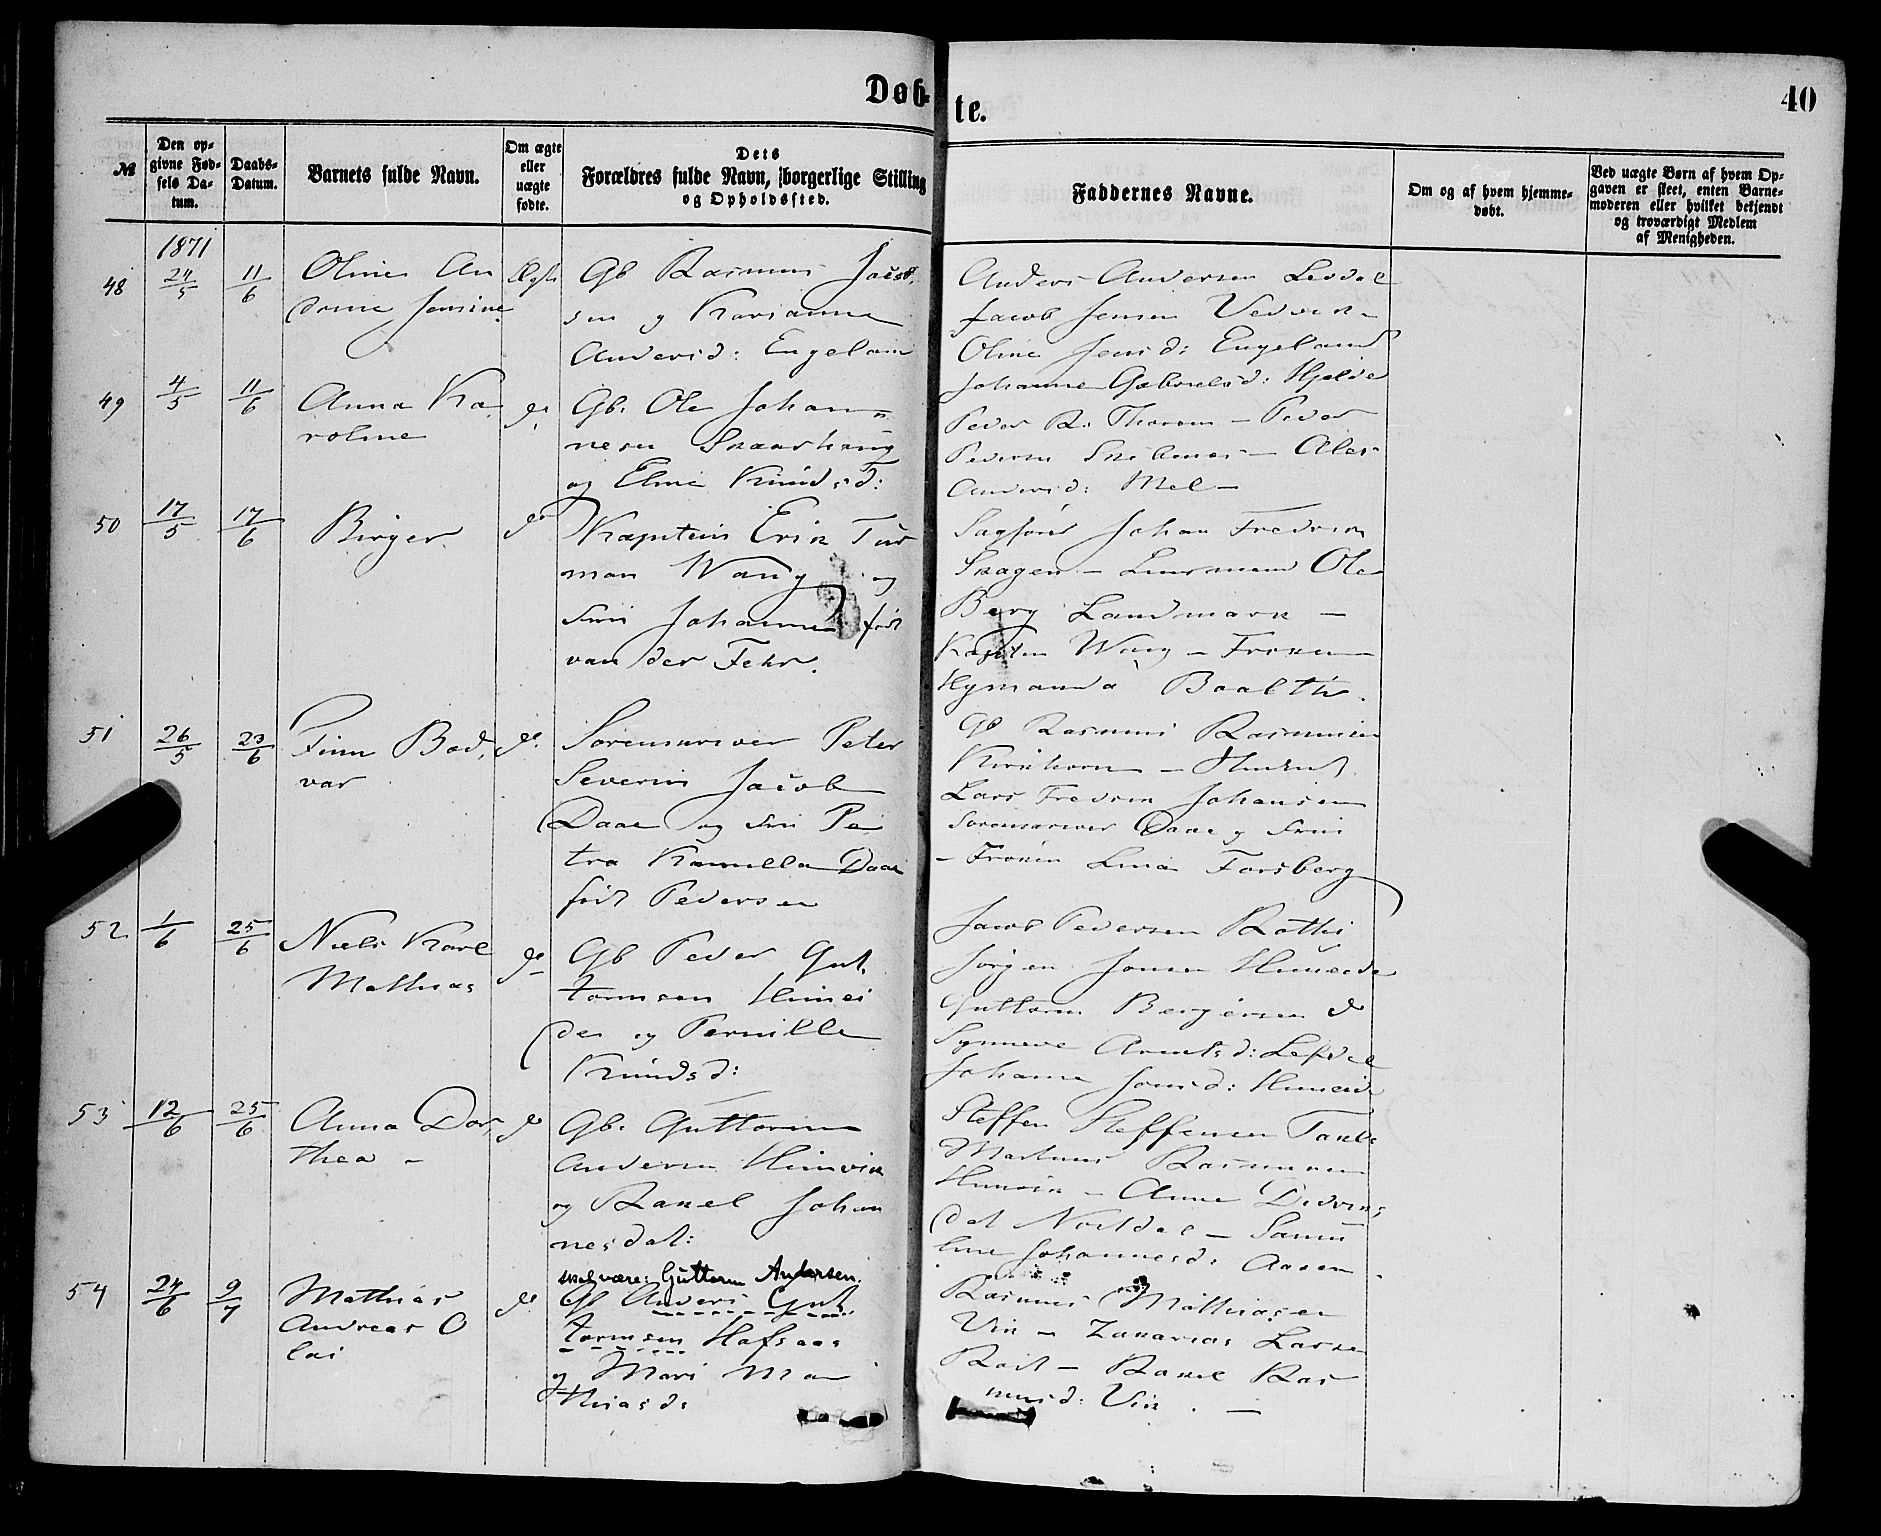 Døb-
te.
40
№
Den op-
givne Fød-
sels Da-
tum.
Daabs-
Datum.
Barnets fulde Navn.
Om ægte
eller
uægte
fødte.
Dets
Forældres fulde Navn, borgerlige Stilling
og Opholdssted.
Faddernes Navne.
Om og af hvem hjemme-
døbt.
Ved uægte Børn af hvem Op-
gaven er skeet, enten Barne-
moderen eller hvilket bekjendt
og troværdigt Medlem
af Menigheden.
1871
48 24/5 11/6
Oline An
drine Jensine
Ægte
Gb Rasmus Jacob,
sen og Karianne
Andersd: Engeland
Anders Andersen Levdal
Jacob Jensen Vedvik
Oline Jensd: Engeland
Johanne Gabrielsd: Hjelde
49 4/5 11/6
Anna Ka,
roline
do
Gb. Ole Johan
nesen Skaarhaug
og Eline Knudsd:
Peder R. Thoresen - Peder
Pedersen
Andersd: Mel -
50 17/5 17/6
Birger
do
Kaptein Erik Tur
man Wang og
Fru Johanne født
van der Fehr.
Sagfører Johan Fredrik
Skagen - Lensmand Ole
Berg Landmark -
Kaptein Wang - Frøken
Baalth
51 26/5 23/6
Finn Bød,
var
do
Sorenskriver Peter
Severin Jacob
Daae og Fru Pe
tra Kamilla Daae
født Pedersen
Gb Rasmus Rasmussen
Kirkhorn -
Lars Fredrik Johansen
Sorenskriver Daae og Frue
- Frøken Lina Forsberg
52 1/6 25/6
Niels Karl
Mathias
do
Gb Peder Gut,
tormsen Hunei
de og Pernille
Knudsd:
Jacob Pedersen Rotti
Jørgen Jonsen Huneide
Guttorm Bergersen do
Synneve Arentsd: Lefdal
Johanne Jonsd: Huneide
53 12/6 25/6
Anna Dor,
thea -
do
Gb. Guttorm
Andersen Hunvik
og Rakel Johan
nesdat:
Steffen Steffensen Takle
Martinus Rasmussen
Hunvik - Anne Didriks
dat Nordal - Samu
line Johannesd: Aasen
54 24/6 9/7
Mathias
Andreas O
lai
do
skal være: Guttorm Andersen.
Gb Anders Gut
tormsen Hafsaas
og Mari Ma
thiasd:
Rasmus Mathiasen
Vik - Zakarias Larsen
- Rakel Ras
musd: Vik . -